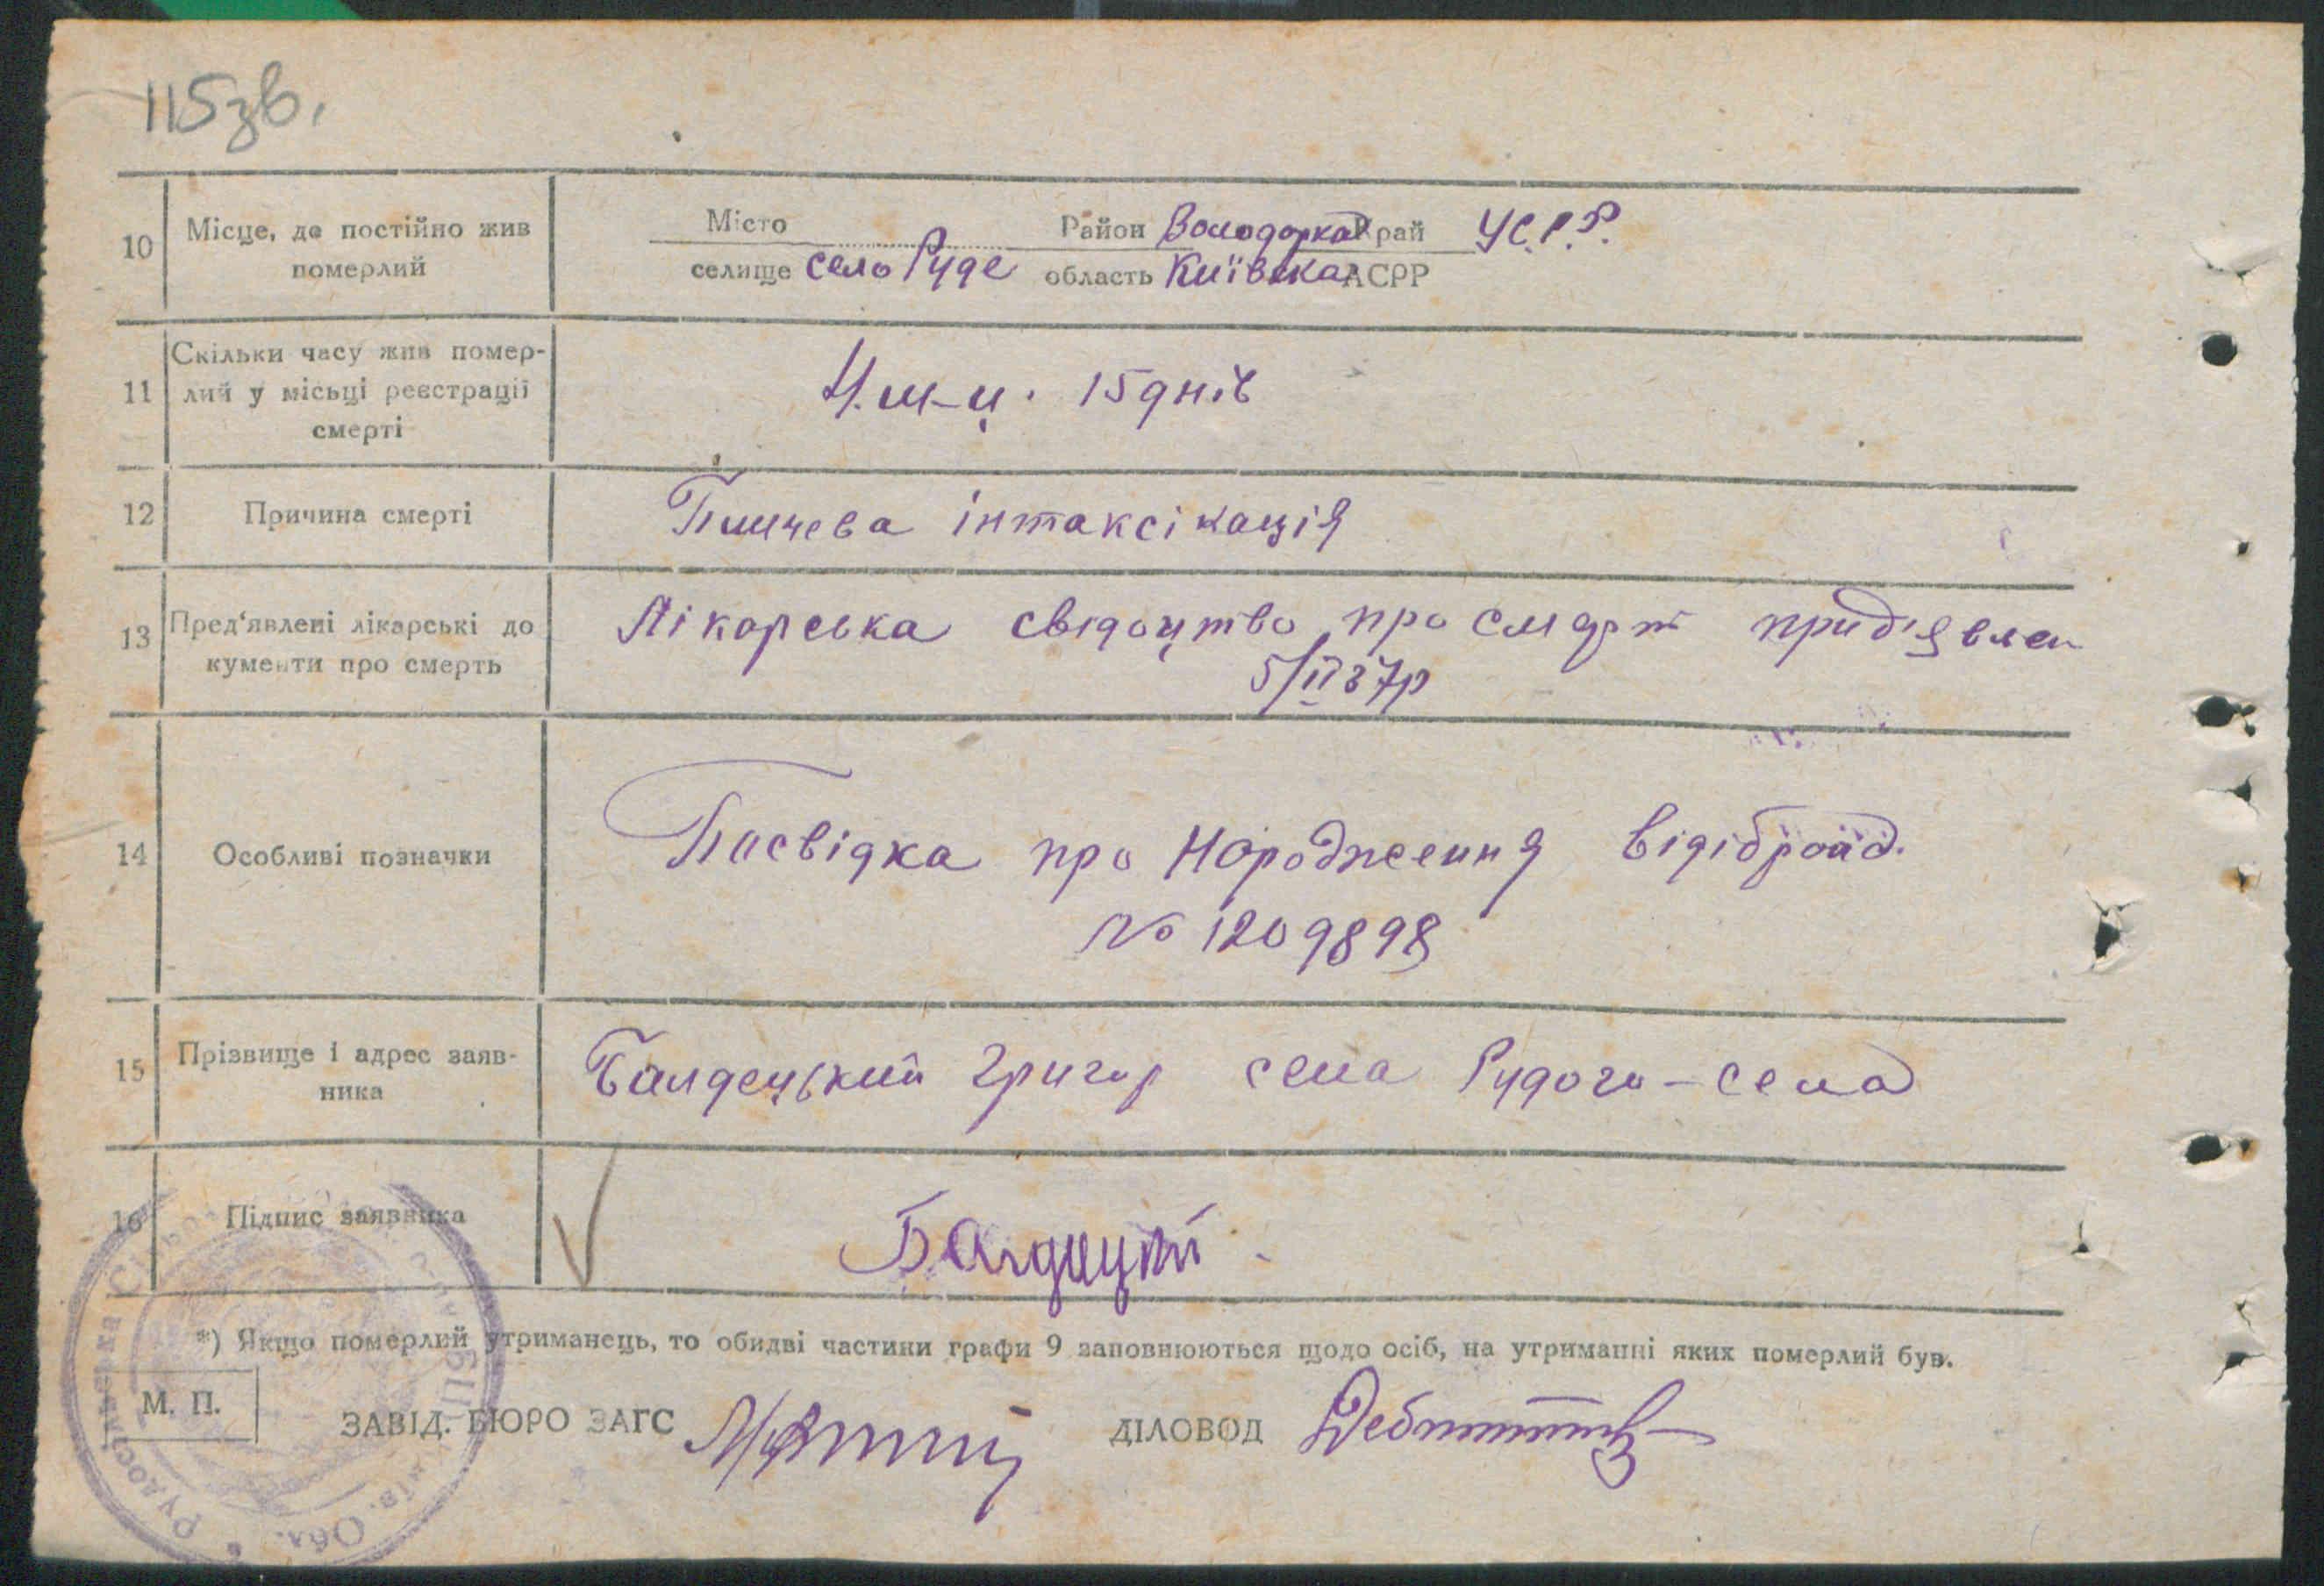 115зв.
10 Місце, де постійно жив померлий
Місто Район Володорка Край УС.Р.Р.
селище село Руде область Київска АСРР
11 Скільки часу жив помер-
лий у місьці реєстрації
смерті
4. м-ц. 15 днів
12 Причина смерті
інтаксікація
13 Пред'явлені лікарські до
кументи про смерть
Лікарська свідоцтво про смерт придявлен
5/II 37р
14 Особливі позначки
Посвідка про Народження
№ 1209898
15 Прізвище і адрес заяв-
ника
Балдецький Григор села Рудого-села
16 Підпис заявника
*) Якщо померлий утриманець, то обидві частини графи 9 заповнюються щодо осіб, на утриманні яких померлий був.
М. П.
ЗАВІД. БЮРО ЗАГС ДІЛОВОД